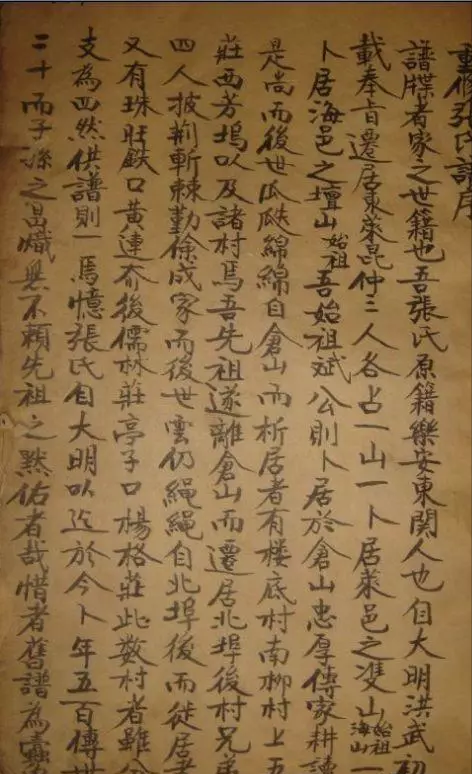 重修張氏譜序
譜牒者家之世籍也吾張氏原籍樂安東関人也自大明洪武初
載奉旨遷居東萊昆仲三人各占一山一卜居萊邑之雙山始祖海山一
卜居海邑之壇山始祖吾始祖斌公則卜居於倉山忠厚傳家耕讀
是尚而後世瓜瓞綿綿自倉山而析居者有楼底村南柳村上五
莊西芳塢以及諸村焉吾先祖遂離倉山而遷居北埠後村兄弟
四人披荆斬棘勤儉成家而後世雲仍繩繩自北埠後而徙居者
又有珠旺鉄口黄連夼後儒林莊亭子口楊格莊此数村者雖分
支為四然供譜則一焉憶張氏自大明以迄於今卜年五百傳世
二十而子孫之昌熾無不頼先祖之黙佑者哉惜者舊譜為蠹